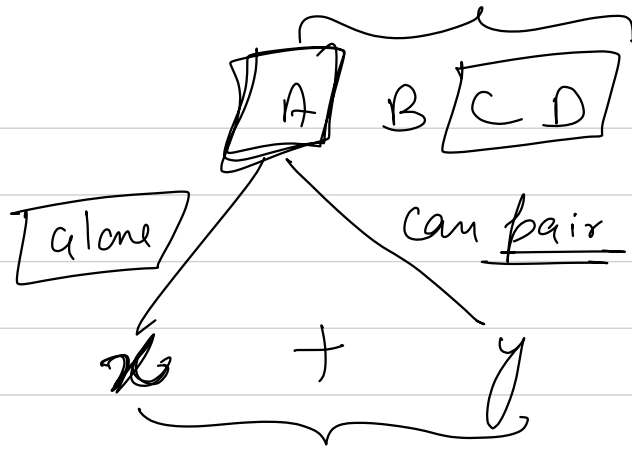 A B C D
alone can pair
x + y